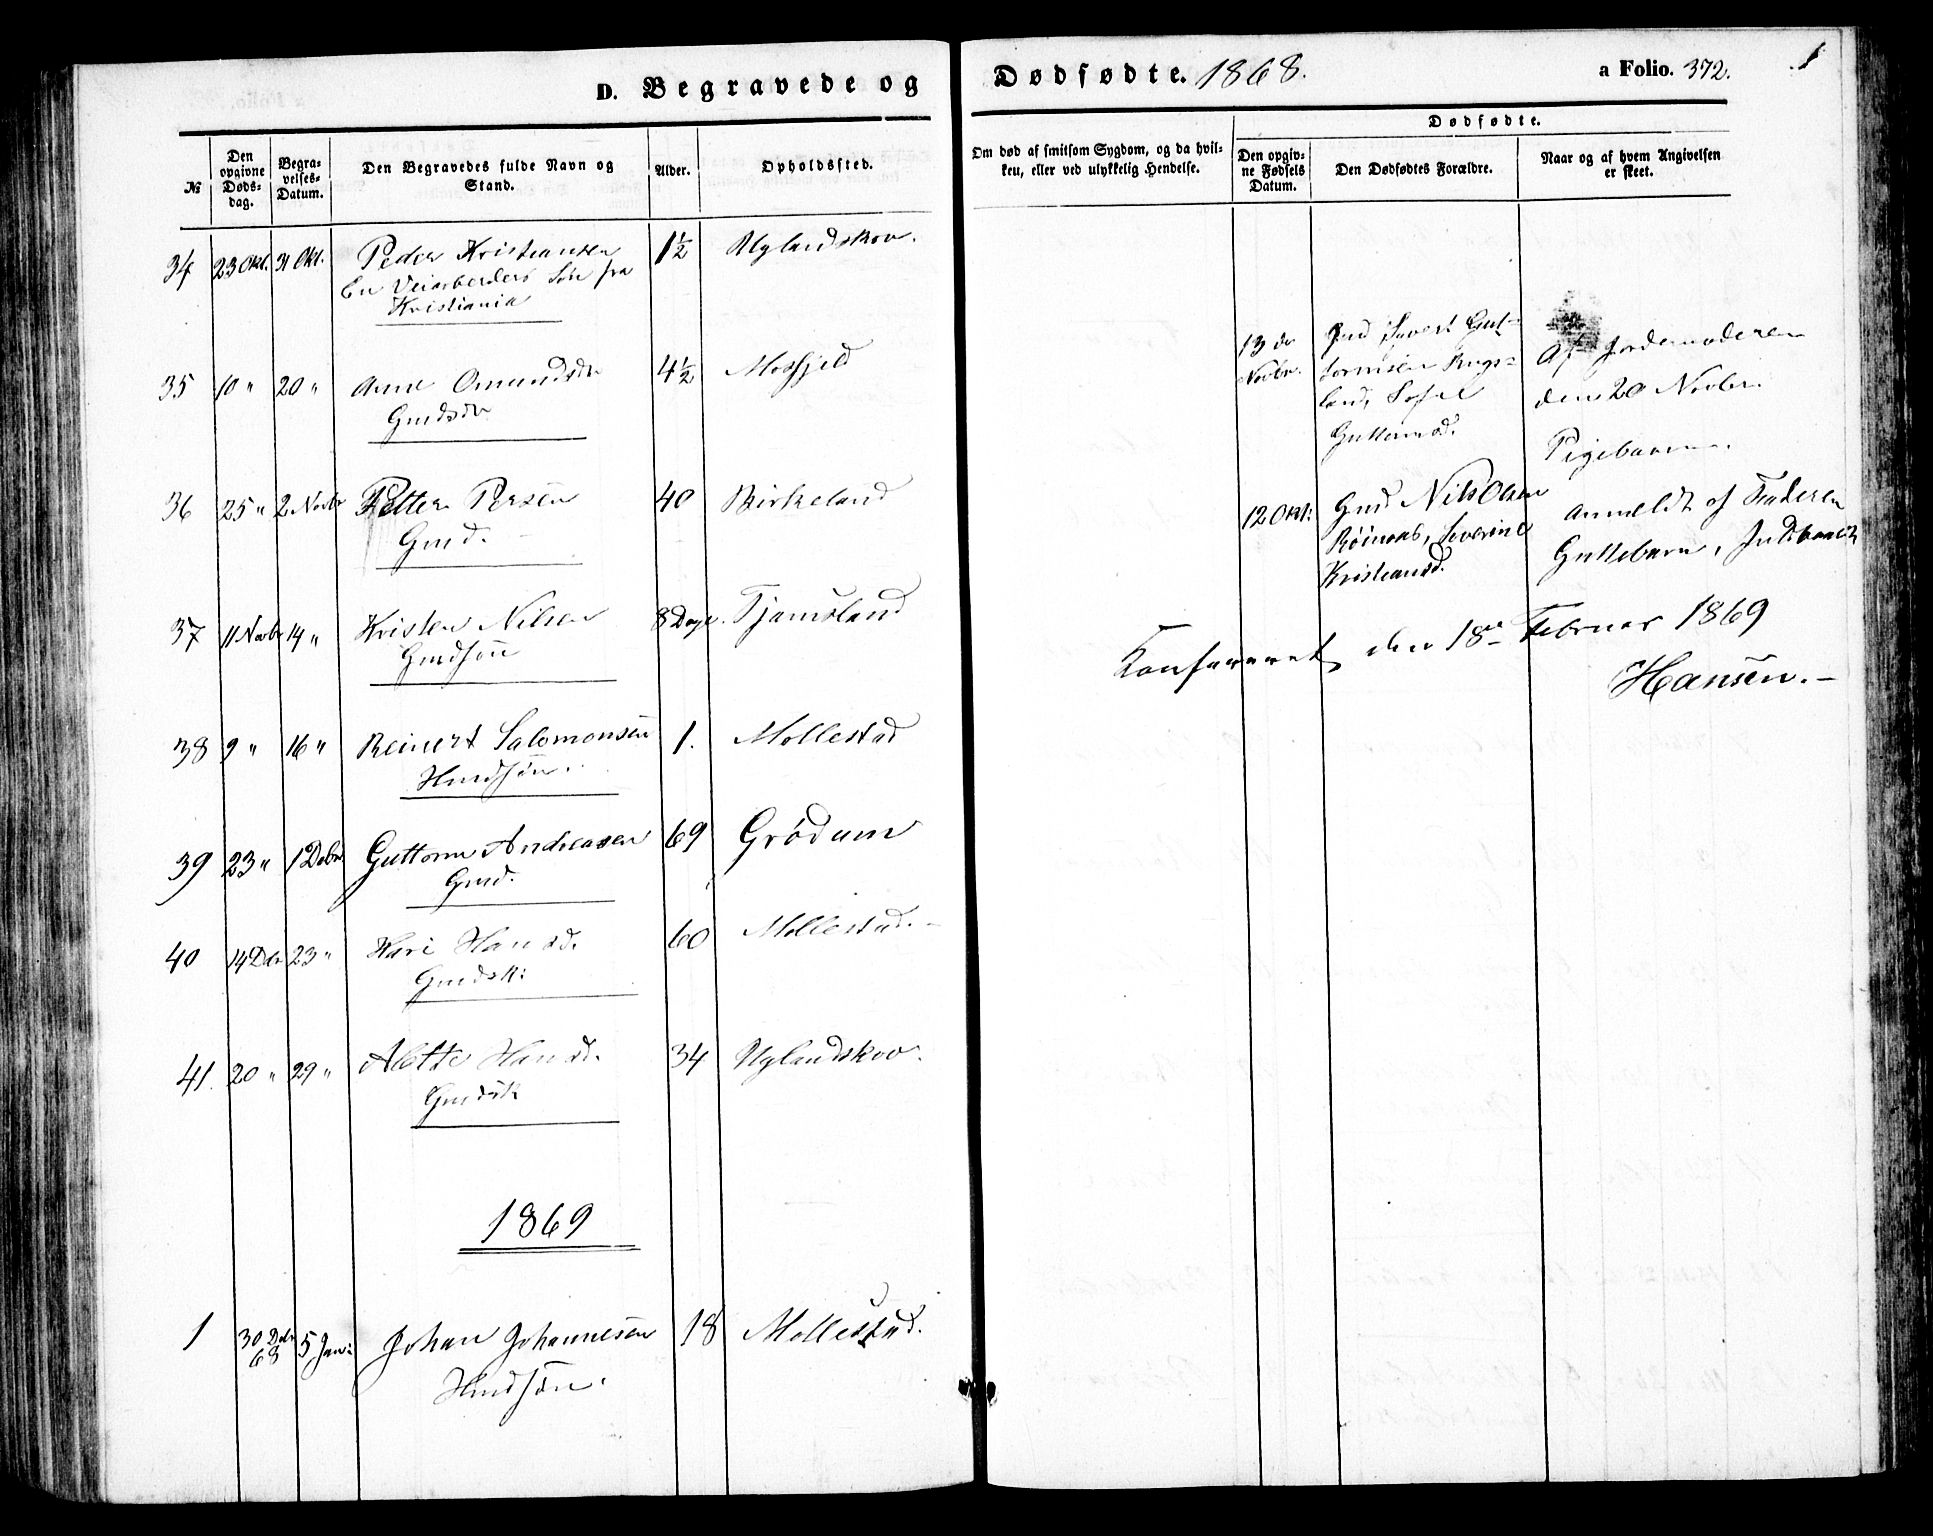 D. Begravede og
№
Den opgivne Døds-dag.
Begra-velses-Datum.
Den Begravedes fulde Navn og Stand.
Alder.
Opholdsted.
34 23 Okt. 31 Okt. Peder Kristiansen 1½ Uglandskov.
En Veiarbeiders Søn fra
Kristiania
35 10 " 20 " Anne Omundsdr 4½ Mosfjeld
Gmdsdr
36 25 " 2 Novbr Petter Persen 40 Birkeland
Gmd.
37 11 Novbr 14 " Kristen Nilsen 8 Dage. Tjamsland
Gmdsøn
38 9 " 16 " Reinert Salomonsen 1. Mollestad
Hmdsøn.
39 23 " 1 Debr Guttorm Andreasen 69 Grødum
Gmd.
40 14 Debr 23 " Kari Hansd. 60 Mollestad.
Gmdsk:
41. 20 " 29 " Alette Hansd. 34 Uglandskov.
Gmdsk
1869
1 30 Debr 68 5 Jan: Johan Johannesen 18 Mollestad.
Hmdsøn.
Dødfødte. 1868.
a Folio. 372.
1
Om død af smitsom Sygdom, og da hvil-
ken, eller ved ulykkelig Hendelse.
Dødfødte.
Den opgiv-
ne Fødsels
Datum.
Den Dødfødtes Forældre.
Naar og af hvem Angivelsen
er skeet.
13 de
Novbr.
Gmd Sivert Gut-
tormsen Rugs-
land, Sofie
Guttormsd.
Af Jordemoderen
den 20 Novbr.
Pigebarn.
12 Okt:
Gmd Nils Olsen
Røinaas, Severine
Kristiansd.
Anmeldt af Faderen
Guttebarn,
Konfereret den 18de Februar 1869
Hansen.